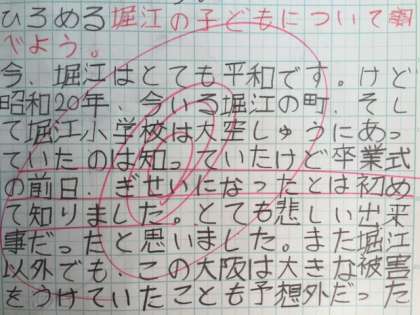 ひろめる堀江の子どもについて調
べよう。
今、堀江はとても平和です。けど
昭和20年、今いる堀江の町、そし
て堀江小学校は大空しゅうにあっ
ていたのは知っていたけど卒業式
の前日、ぎせいになったとは初め
て知りました。とても悲しい出来
事だったと思いました。また堀江
以外でも、この大阪は大きな被害
をうけていたことも予想外だった